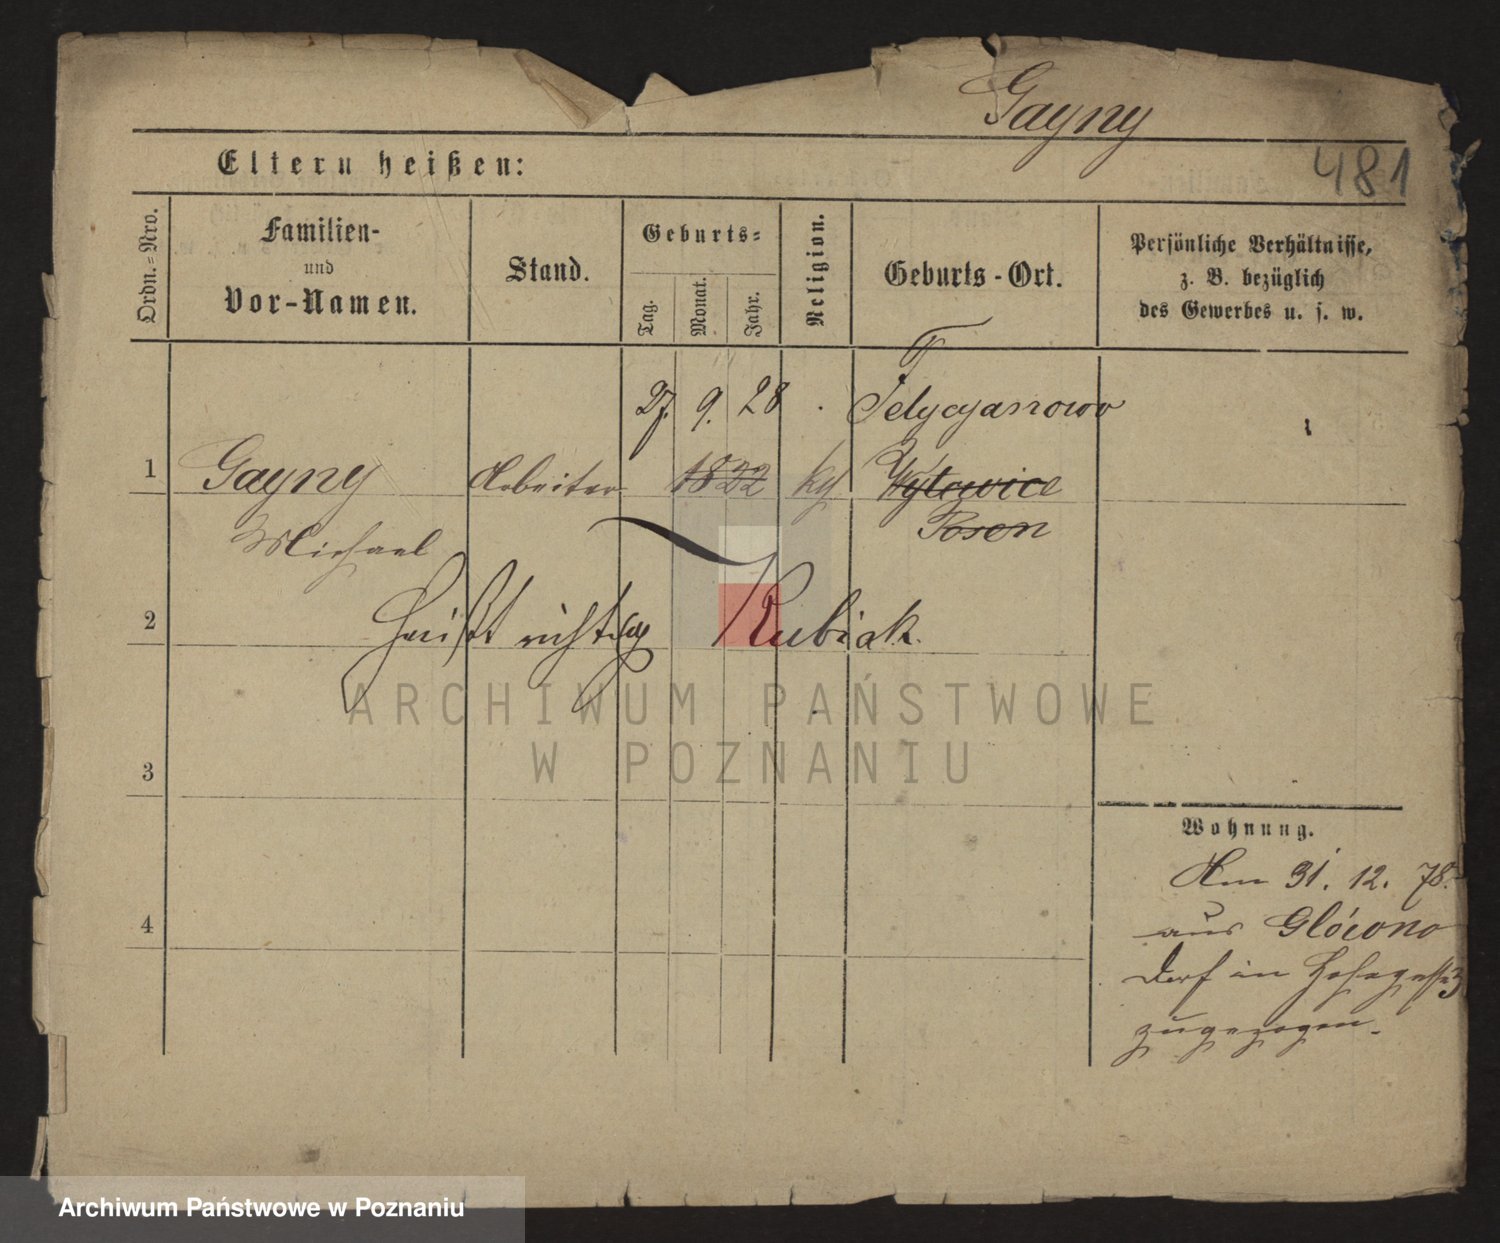 Gayny
Eltern heißen:
481
Ordn.=Nro.
Familien-
und
Vor-Namen.
Stand.
Geburts=
Tag.
Monat.
Jahr.
Religion.
Geburts-Ort.
Persönliche Verhältnisse,
z. B. bezüglich
des Gewerbes u. s. w.
27. 9. 28 Felycyanowo
1 Gayny Arbeiter 1822 Wytowice
Michael Posen
2 heißt richtig Rubiak.
ARCHIWUM PAŃSTWOWE
W POZNANIU
3
Wohnung.
Am 31. 12. 78.
aus Glówno
Dorf in 3
zugezogen.
4
Archiwum Państwowe w Poznaniu